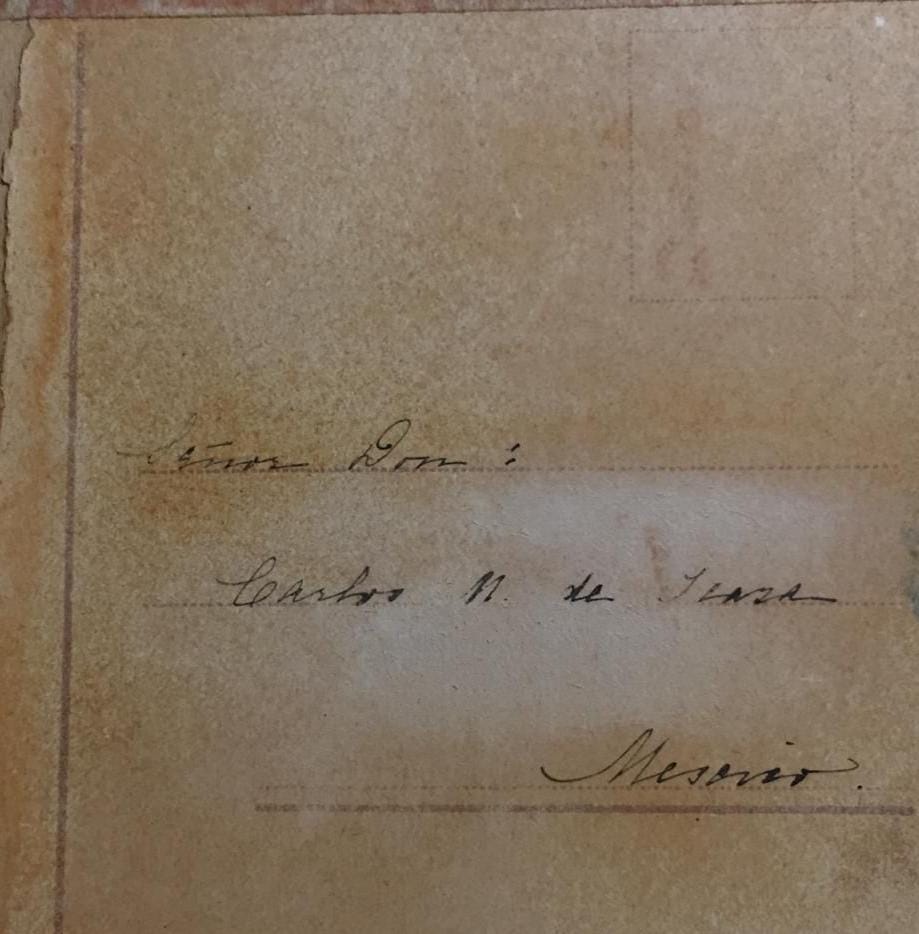 Señor Don :
Carlos N. de Icaza